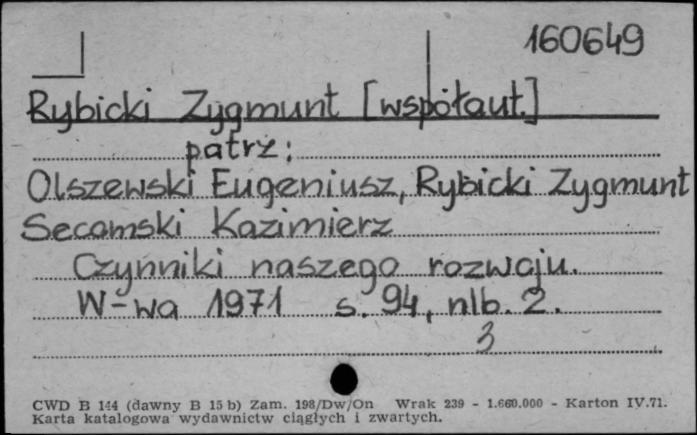 160649
Rybicki Zygmunt [współaut.]
patrz:
Olszewski Eugeniusz, Rybicki Zygmunt
Secomski Kazimierz
Czynniki naszego rozwoju.
W-wa 1971 s. 94, nlb. 2.
3
CWD B 144 (dawny B 15 b) Zam. 198/Dw/On Wrak 239 - 1.660.000 - Karton IV.71.
Karta katalogowa wydawnictw ciągłych i zwartych.